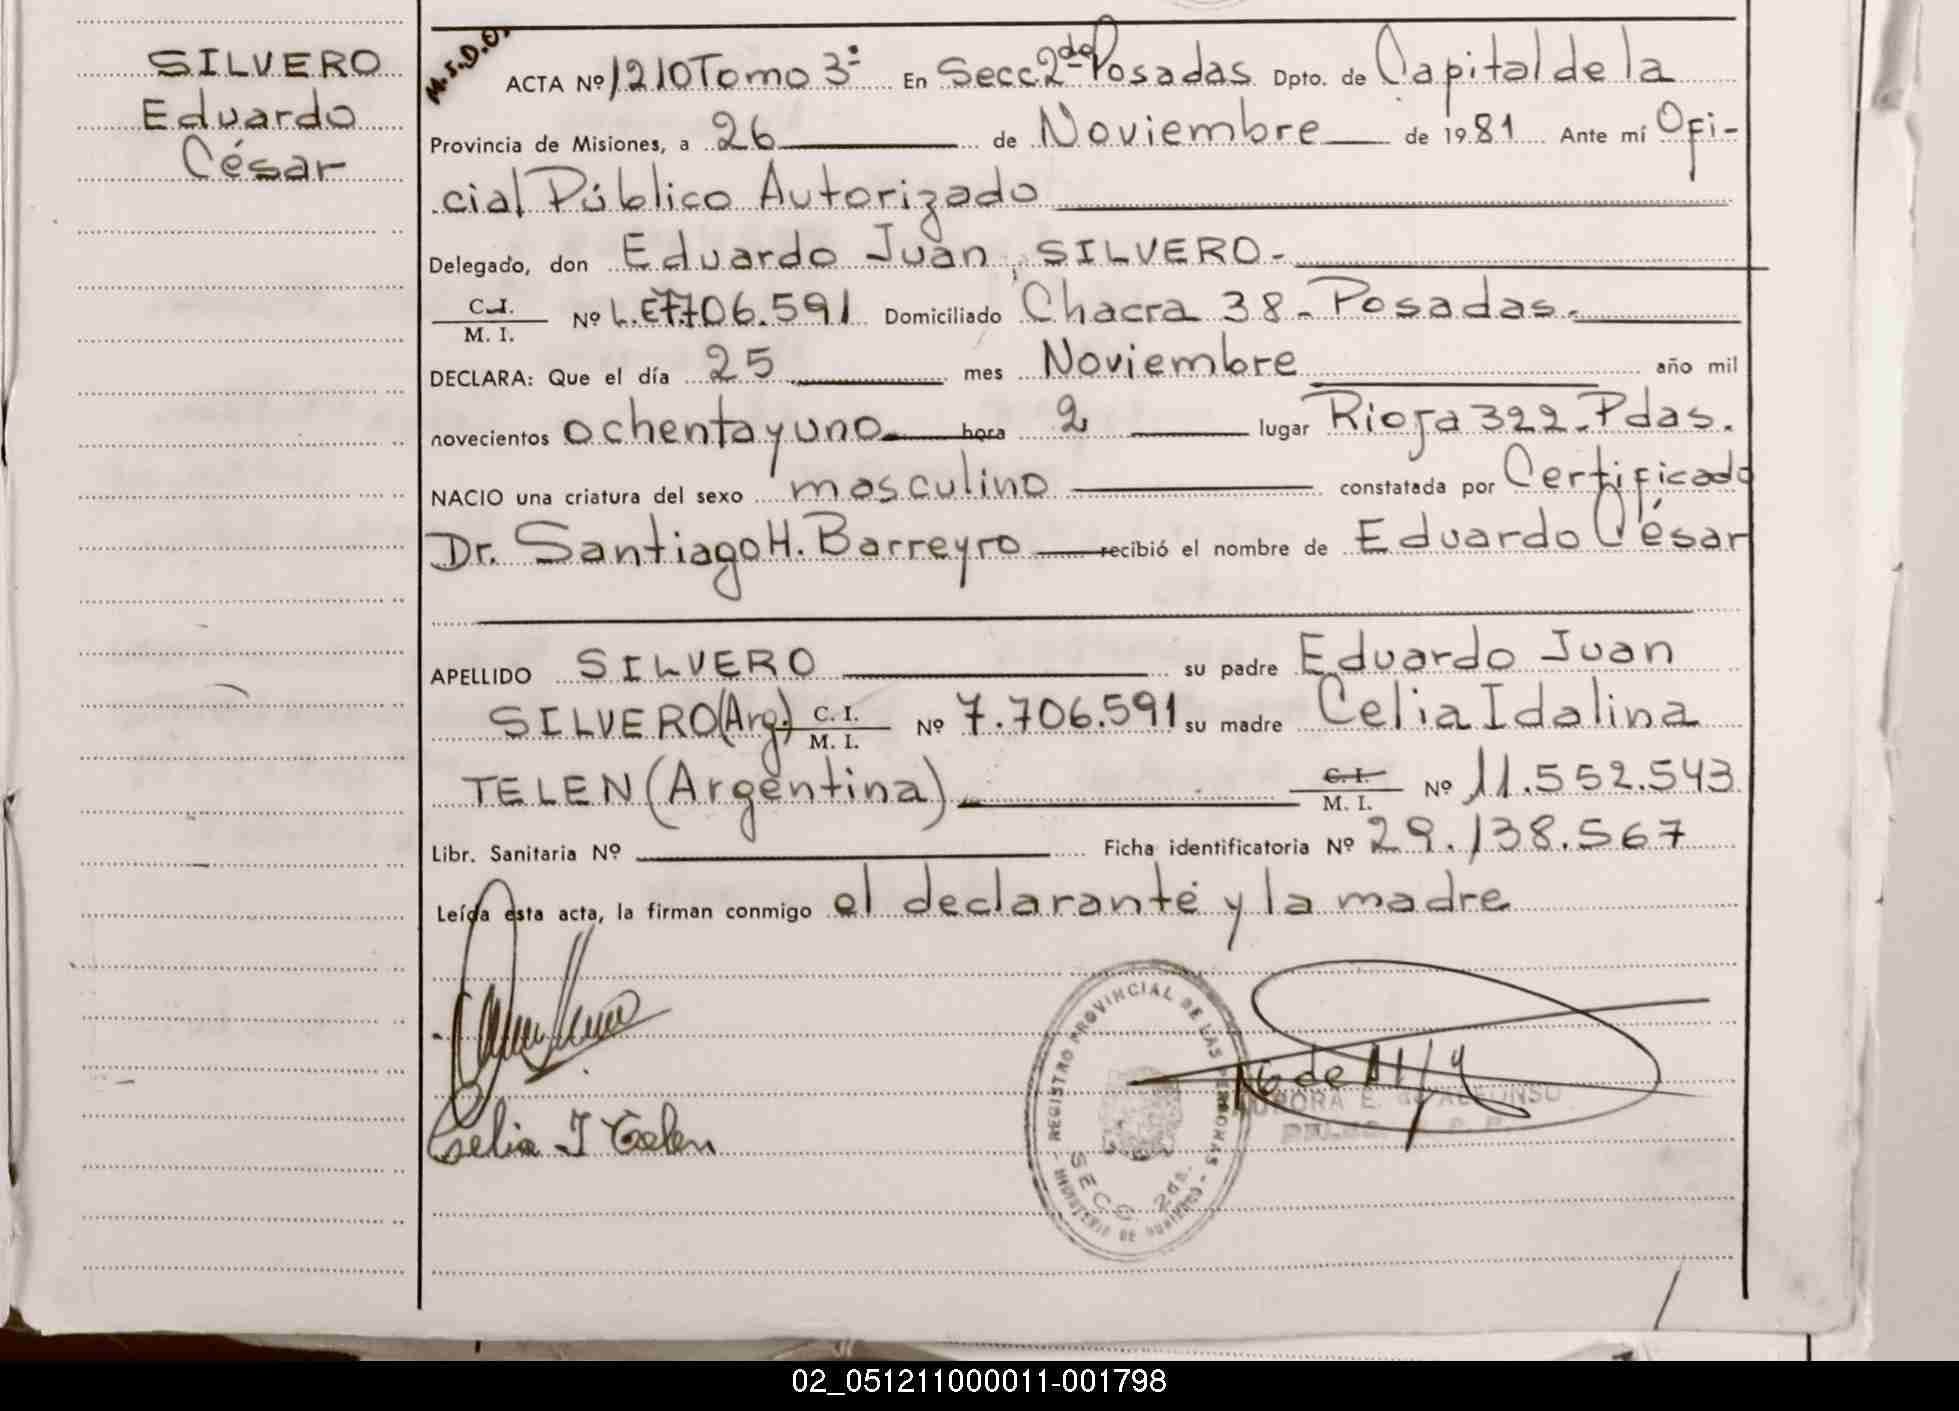 SILVERO
Eduardo
César
M.S.D.O.
ACTA Nº 1210 Tomo 3º En Secc. 2da Posadas Dpto. de Capital de la
Provincia de Misiones, a 26 de Noviembre de 1981 Ante mí Ofi-
cial Público Autorizado
Delegado, don Eduardo Juan, SILVERO-
C.I.
M. I. Nº L.E 7.706.591 Domiciliado Chacra 38- Posadas.
DECLARA: Que el día 25 mes Noviembre año mil
novecientos ochenta y uno hora 2 lugar Rioja 322- Pdas.
NACIO una criatura del sexo masculino constatada por Certificado
Dr. Santiago H. Barreyro recibió el nombre de Eduardo César
APELLIDO SILVERO su padre Eduardo Juan
SILVERO (Arg.) C. I. M. I. Nº 7.706.591 su madre Celia Idalina
TELEN (Argentina) C. I. M. I. Nº 11.552.543
Libr. Sanitaria Nº Ficha identificatoria Nº 29.138.567
Leída esta acta, la firman conmigo el declarante y la madre
Celia I Telen
REGISTRO PROVINCIAL DE LAS PERSONAS
SECC. 2da.
MINISTERIO DE GOBIERNO
AURORA E. de ALFONSO
02_051211000011-001798